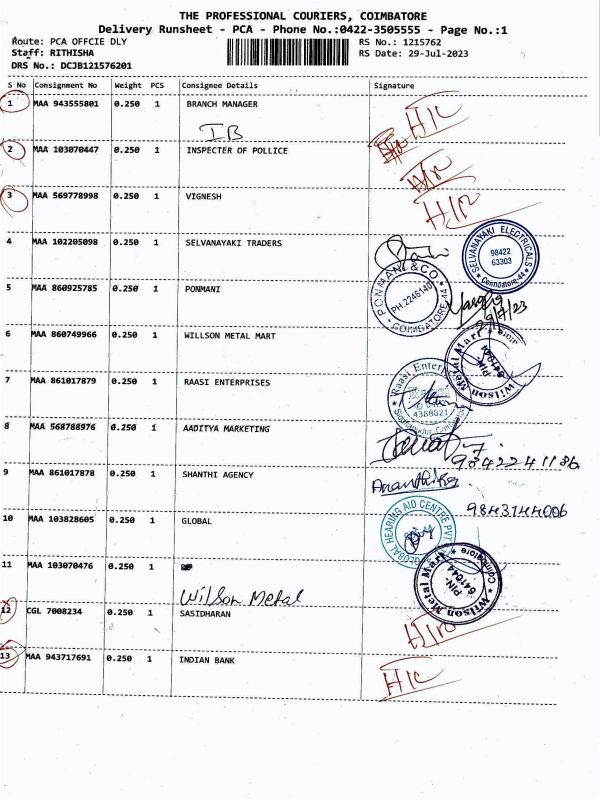 THE PROFESSIONAL COURIERS, COIMBATORE
Delivery Runsheet - PCA - Phone No.:0422-3505555 - Page No.:1
Route: PCA OFFCIE DLY RS No.: 1215762
Staff: RITHISHA RS Date: 29-Jul-2023
DRS No.: DCJB121576201
S No Consignment No Weight PCS Consignee Details Signature
1 MAA 943555801 0.250 1 BRANCH MANAGER
IB
2 MAA 103070447 0.250 1 INSPECTER OF POLLICE
3 MAA 569778998 0.250 1 VIGNESH
4 MAA 102205098 0.250 1 SELVANAYAKI TRADERS
SELVANAYAKI ELECTRICALS
98422
63303
Coimbatore-44
5 MAA 860925785 0.250 1 PONMANI
PONMANI & CO
PH.2246140
COIMBATORE-44
6 MAA 860749966 0.250 1 WILLSON METAL MART
Wilson Metal Mart
PIN-
641044
7 MAA 861017879 0.250 1 RAASI ENTERPRISES
Raasi Enter
4388821
8 MAA 568788976 0.250 1 AADITYA MARKETING
9842241186
9 MAA 861017878 0.250 1 SHANTHI AGENCY
9843144006
10 MAA 103828605 0.250 1 GLOBAL
GLOBAL HEARING AID CENTRE PVT
11 MAA 103070476 0.250 1
Wilson Metal
Wilson Metal Mart
Coimbatore
PIN-
641044
12 CGL 7008234 0.250 1 SASIDHARAN
13 MAA 943717691 0.250 1 INDIAN BANK